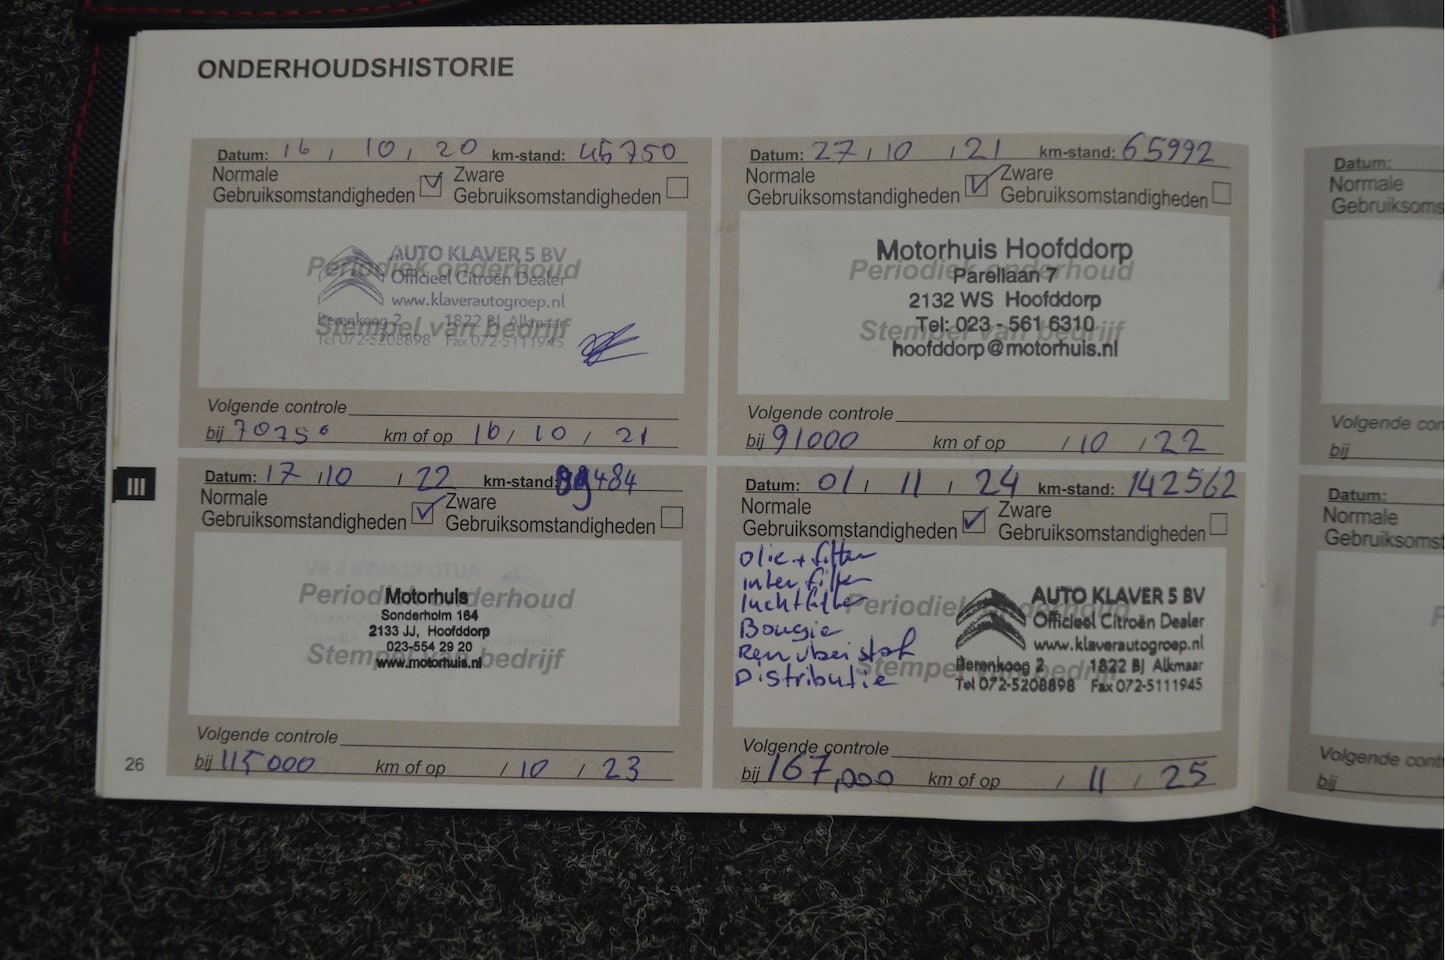 ONDERHOUDSHISTORIE
Datum: 16 / 10 / 20 km-stand: 45750
Normale Zware
Gebruiksomstandigheden Gebruiksomstandigheden
Periodiek onderhoud
Stempel van bedrijf
AUTO KLAVER 5 BV
Officieel Citroën Dealer
www.klaverautogroep.nl
Berenkoog 2 1822 BJ Alkmaar
Tel 072-5208898 Fax 072-5111945
Volgende controle
bij 70750 km of op 16 / 10 / 21
Datum: 27 / 10 / 21 km-stand: 65992
Normale Zware
Gebruiksomstandigheden Gebruiksomstandigheden
Periodiek onderhoud
Stempel van bedrijf
Motorhuis Hoofddorp
Parellaan 7
2132 WS Hoofddorp
Tel: 023 - 561 6310
hoofddorp@motorhuis.nl
Volgende controle
bij 91000 km of op / 10 / 22
Datum: 17 / 10 / 22 km-stand:
Normale Zware
Gebruiksomstandigheden Gebruiksomstandigheden
Periodiek onderhoud
Stempel van bedrijf
Motorhuis
Sonderholm 164
2133 JJ, Hoofddorp
023-554 29 20
www.motorhuis.nl
Volgende controle
bij 115000 km of op / 10 / 23
Datum: 01 / 11 / 24 km-stand: 142562
Normale Zware
Gebruiksomstandigheden Gebruiksomstandigheden
Olie + filter
inter filter
luchtfilter
Bougie
Remvloeistof
Distributie
Periodiek onderhoud
Stempel van bedrijf
AUTO KLAVER 5 BV
Officieel Citroën Dealer
www.klaverautogroep.nl
Berenkoog 2 1822 BJ Alkmaar
Tel 072-5208898 Fax 072-5111945
Volgende controle
bij 167,000 km of op / 11 / 25
III
26
Datum:
Normale
Gebruiksoms
Volgende con
bij
Datum:
Normale
Gebruiksomst
Volgende cont
bij